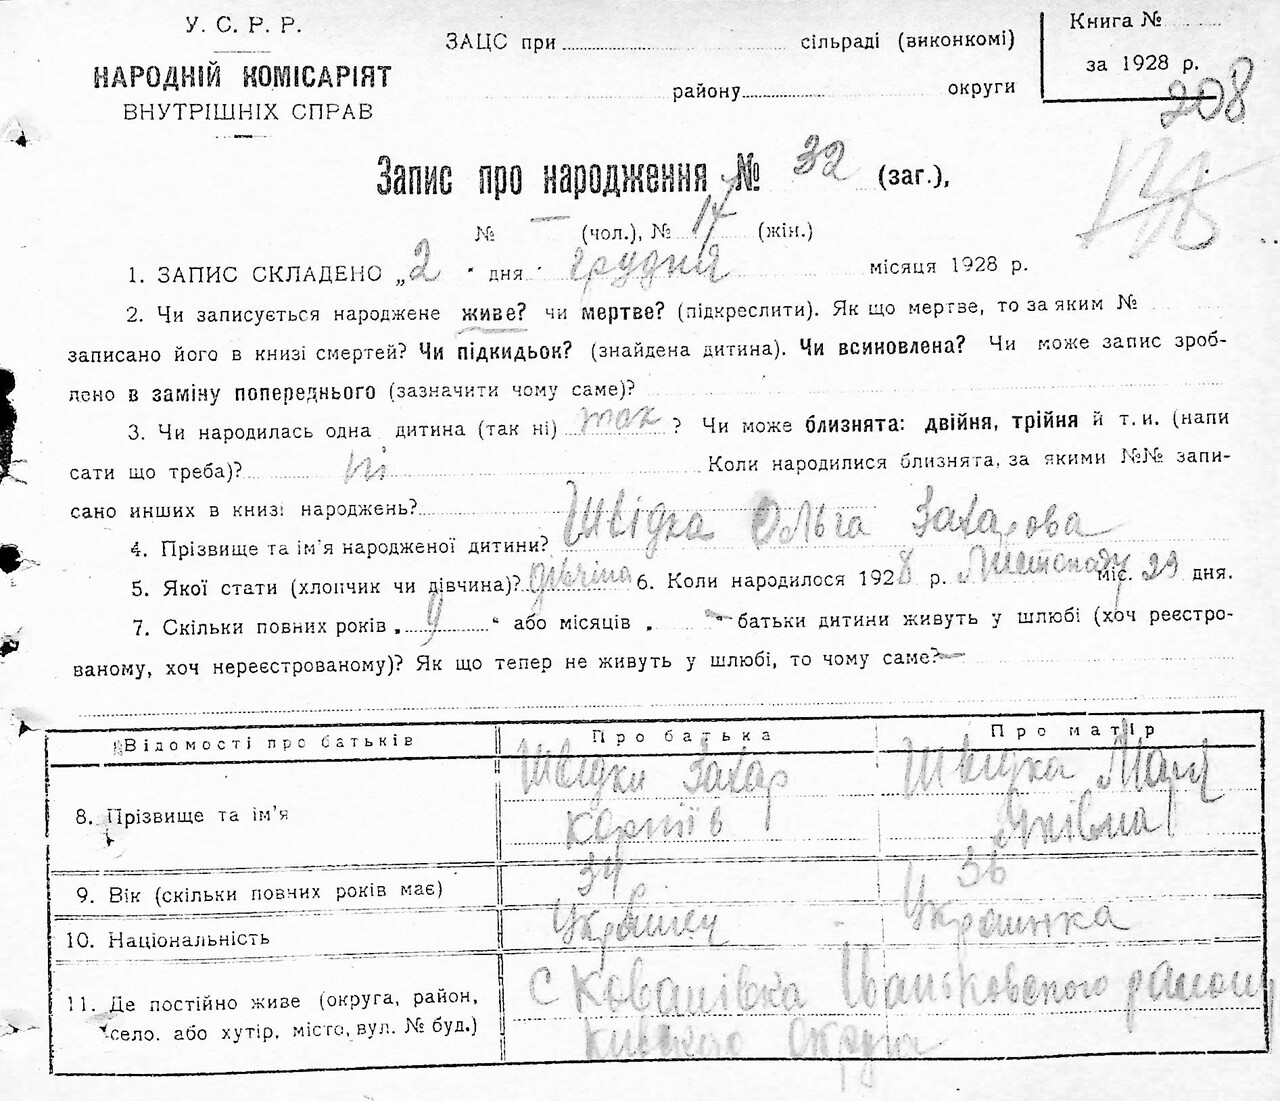 У. С. Р. Р.
НАРОДНІЙ КОМІСАРІЯТ
ВНУТРІШНІХ СПРАВ
ЗАЦС при сільраді (виконкомі)
району округи
Книга №
за 1928 р.
208
Запис про народження № 32 (заг.),
№ — (чол.), № 14 (жін.)
1. ЗАПИС СКЛАДЕНО „2 " дня грудня місяця 1928 р.
2. Чи записується народжене живе? чи мертве? (підкреслити). Як що мертве, то за яким №
записано його в книзі смертей? Чи підкидьок? (знайдена дитина). Чи всиновлена? Чи може запис зроб-
лено в заміну попереднього (зазначити чому саме)?
3. Чи народилась одна дитина (так ні) так ? Чи може близнята: двійня, трійня й т. и. (напи
сати що треба)? ні Коли народилися близнята, за якими №№ запи-
сано инших в книзі народжень?
4. Прізвище та ім'я народженої дитини? Швідка Ольга Захарова
5. Якої стати (хлопчик чи дівчина)? дівчина 6. Коли народилося 1928 р. Листопаду міс. 29 дня.
7. Скільки повних років „ 9 " або місяців „ — " батьки дитини живуть у шлюбі (хоч реєстро-
ваному, хоч нереєстрованому)? Як що тепер не живуть у шлюбі, то чому саме? —
Відомості про батьків Про батька Про матір
8. Прізвище та ім'я Швідки Захар Швидка
Корніїв
9. Вік (скільки повних років має) 34 36
10. Національність Українец Українка
11. Де постійно живе (округа, район, с Ковалівка Іваньковского району
село, або хутір, місто, вул. № буд.) округа